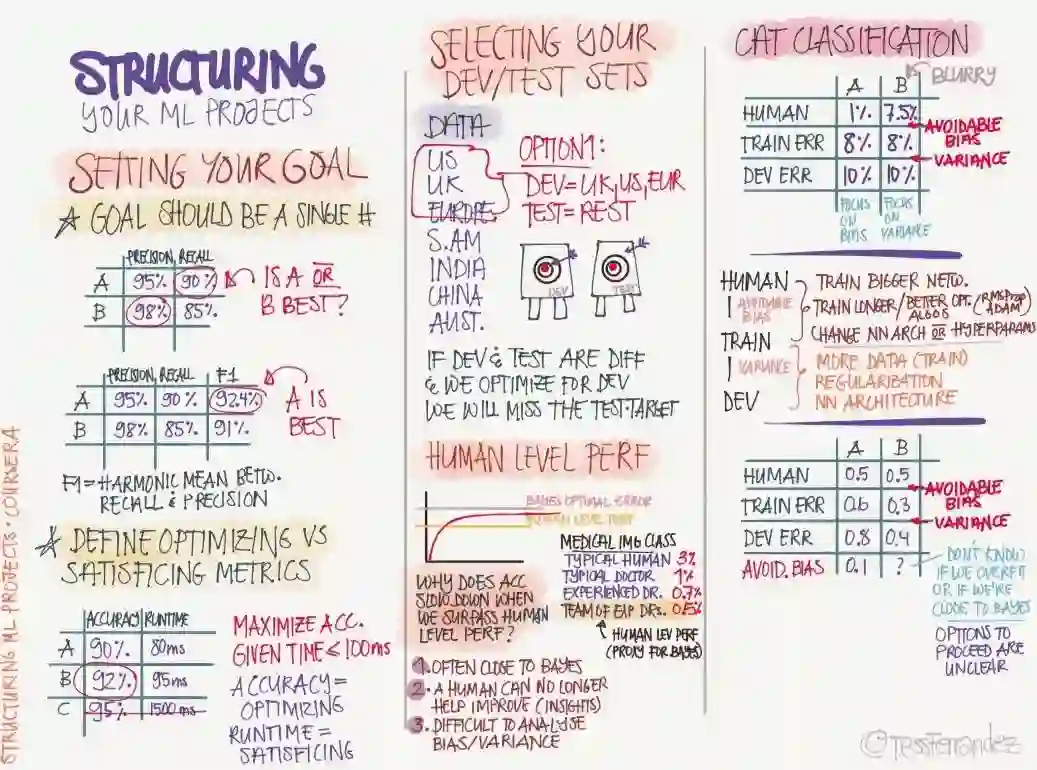 STRUCTURING
YOUR ML PROJECTS
SETTING YOUR GOAL
GOAL SHOULD BE A SINGLE #
PRECISION, RECALL
A 95% 90%
B 98% 85%
IS A OR
B BEST?
PRECISION, RECALL F1
A 95% 90% 92.4%
B 98% 85% 91%
A IS
BEST
F1 = HARMONIC MEAN BETW.
RECALL & PRECISION
DEFINE OPTIMIZING VS
SATISFICING METRICS
ACCURACY RUNTIME
A 90% 80ms
B 92% 95ms
C 95% 1500 ms
MAXIMIZE ACC.
GIVEN TIME ≤ 100ms
ACCURACY =
OPTIMIZING
RUNTIME =
SATISFICING
STRUCTURING ML PROJECTS · COURSERA
SELECTING YOUR
DEV/TEST SETS
DATA
US
UK
EUROPE
S.AM
INDIA
CHINA
AUST.
OPTION1:
DEV = UK, US, EUR
TEST = REST
DEV
TEST
IF DEV & TEST ARE DIFF
& WE OPTIMIZE FOR DEV
WE WILL MISS THE TEST-TARGET
HUMAN LEVEL PERF
BAYES OPTIMAL ERROR
HUMAN LEVEL PERF
MEDICAL IMG CLASS
TYPICAL HUMAN 3%
TYPICAL DOCTOR 1%
EXPERIENCED DR. 0.7%
TEAM OF EXP DRS. 0.5%
HUMAN LEV PERF
(PROXY FOR BAYES)
WHY DOES ACC
SLOW DOWN WHEN
WE SURPASS HUMAN
LEVEL PERF?
1. OFTEN CLOSE TO BAYES
2. A HUMAN CAN NO LONGER
HELP IMPROVE (INSIGHTS)
3. DIFFICULT TO ANALYSE
BIAS/VARIANCE
CAT CLASSIFICATION
BLURRY
A B
HUMAN 1% 7.5%
TRAIN ERR 8% 8%
DEV ERR 10% 10%
AVOIDABLE
BIAS
VARIANCE
FOCUS
ON
BIAS
FOCUS
ON
VARIANCE
HUMAN
AVOIDABLE
BIAS
TRAIN
VARIANCE
DEV
TRAIN BIGGER NETW.
TRAIN LONGER/BETTER OPT. ALGOS (RMSProp ADAM)
CHANGE NN ARCH OR HYPERPARAMS
MORE DATA (TRAIN)
REGULARIZATION
NN ARCHITECTURE
A B
HUMAN 0.5 0.5
TRAIN ERR 0.6 0.3
DEV ERR 0.8 0.4
AVOID. BIAS 0.1 ?
AVOIDABLE
BIAS
VARIANCE
DON'T KNOW
IF WE OVERFIT
OR IF WE'RE
CLOSE TO BAYES
OPTIONS TO
PROCEED ARE
UNCLEAR
©TessFerrandez